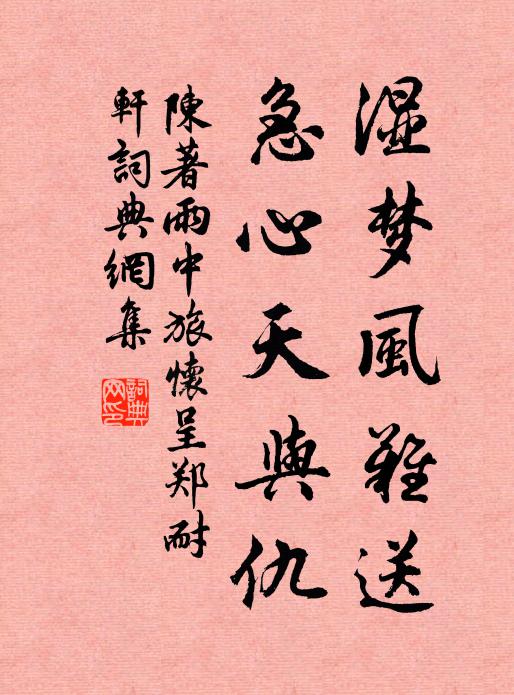 湿梦風難送
急心天與仇
陳著雨中旅懷呈郑耐
軒詞典網集
詞典
网印